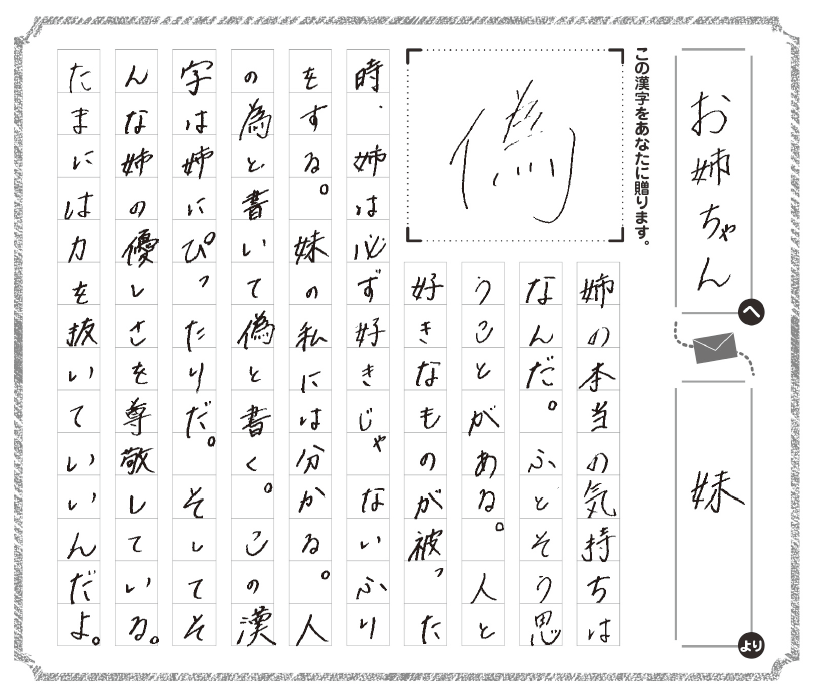 お姉ちゃん
へ
妹
より
この漢字をあなたに贈ります。
偽
姉の本当の気持ちは
なんだ。ふとそう思
うことがある。人と
好きなものが被った
時、姉は必ず好きじゃないふり
をする。妹の私には分かる。人
の為と書いて偽と書く。この漢
字は姉にぴったりだ。そしてそ
んな姉の優しさを尊敬している。
たまには力を抜いていいんだよ。